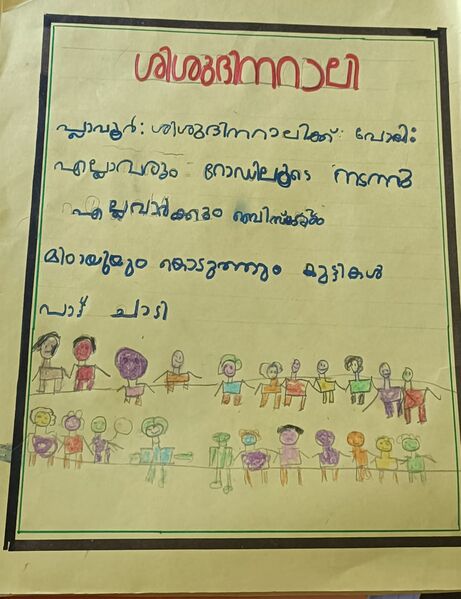 ശിശുദിനറാലി
പ്ലാവൂർ: ശിശുദിനറാലിക്ക് പോയി
എല്ലാവരും റോഡിലൂടെ നടന്നു
എല്ലവാർക്കും ബിസ്ക്കറ്റും
മിഠായുയും കൊടുത്തും കുട്ടികൾ
പാട്ട് പാടി